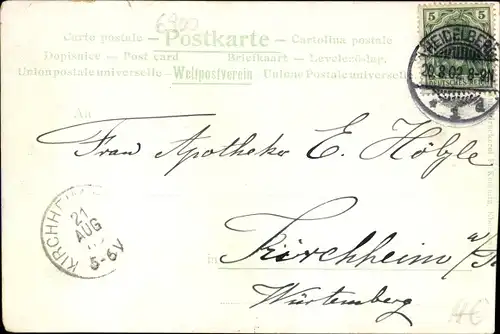 6900
Carte postale — Postkarte — Cartolina postale
Dopisnice — Post card Briefkaart — Levelező-lap.
Union postale universelle — Weltpostverein — Unione Postale universelle
5 5
HEIDELBERG
20.8.02 8-9
* 1 d
An
Frau Apotheker E. Hölzle
KIRCHHEIM
21
AUG
5-6 V
in Kirchheim
Würtemberg